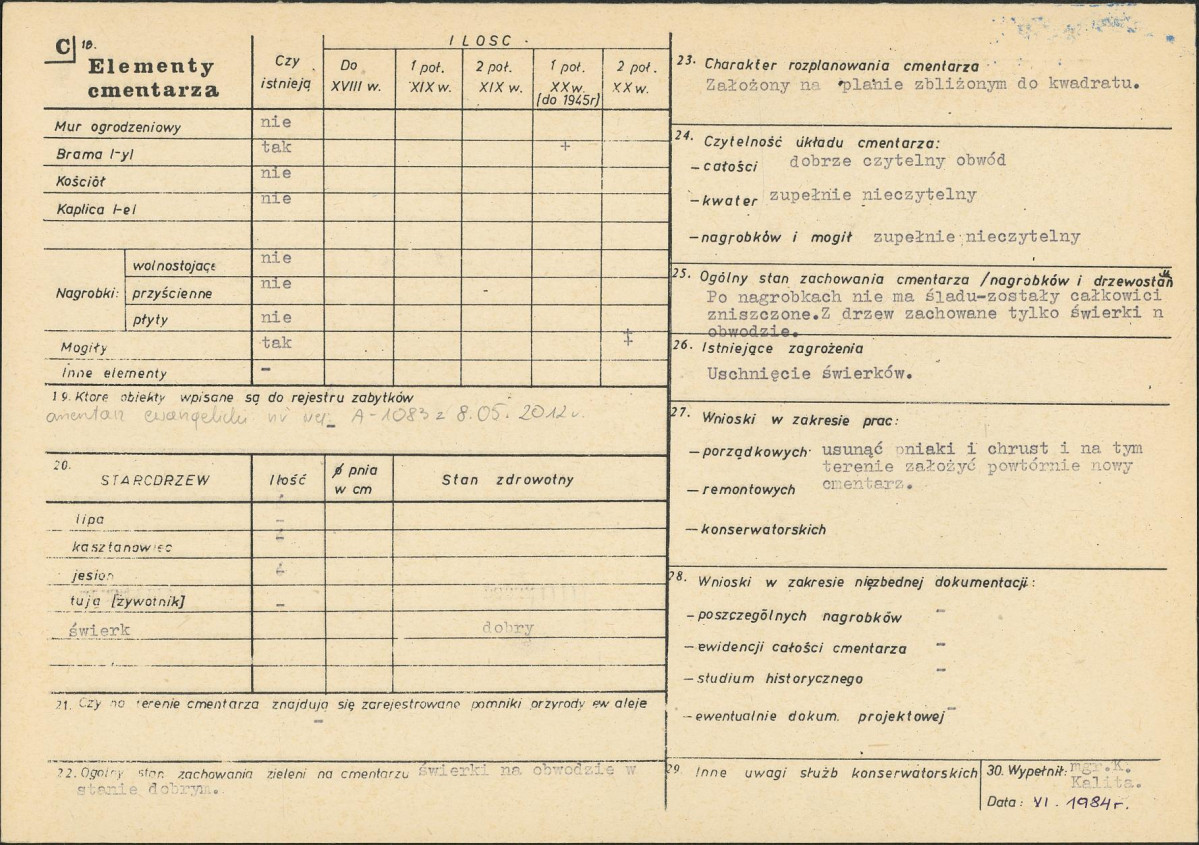 C 18.
Elementy
cmentarza
Czy
istnieją
ILOSC
Do
XVIII w.
1 poł.
XIX w.
2 poł.
XIX w.
1 poł.
XX w.
[do 1945r]
2 poł.
XX w.
Mur ogrodzeniowy nie
Brama l-yl tak +
Kościół nie
Kaplica l-el nie
Nagrobki:
wolnostojące nie
przyścienne nie
płyty nie
Mogiły tak +
Inne elementy -
19. Które obiekty wpisane są do rejestru zabytków
cmentarz ewangelicki nr rej. A-1083 z 8.05.2012 r.
20.
STARODRZEW
Ilość
ϕ pnia
w cm
Stan zdrowotny
lipa -
kasztanowiec -
jesion -
tuja [żywotnik] -
świerk dobry
21. Czy na terenie cmentarza znajdują się zarejestrowane pomniki przyrody ew aleje
-
22. Ogólny stan zachowania zieleni na cmentarzu świerki na obwodzie w
stanie dobrym.
23. Charakter rozplanowania cmentarza
Założony na planie zbliżonym do kwadratu.
24. Czytelność układu cmentarza:
- całości dobrze czytelny obwód
- kwater zupełnie nieczytelny
- nagrobków i mogił zupełnie nieczytelny
25. Ogólny stan zachowania cmentarza /nagrobków i drzewostan
Po nagrobkach nie ma śladu-zostały całkowici
zniszczone.Z drzew zachowane tylko świerki n
obwodzie.
26. Istniejące zagrożenia
Uschnięcie świerków.
27. Wnioski w zakresie prac:
- porządkowych usunąć pniaki i chrust i na tym
terenie założyć powtórnie nowy
cmentarz.
- remontowych
- konserwatorskich
28. Wnioski w zakresie niezbednej dokumentacji:
- poszczególnych nagrobków -
- ewidencji całości cmentarza -
- studium historycznego -
- ewentualnie dokum. projektowej -
29. Inne uwagi służb konserwatorskich
30. Wypełnił: mgr.K.
Kalita.
Data: VI. 1984r.